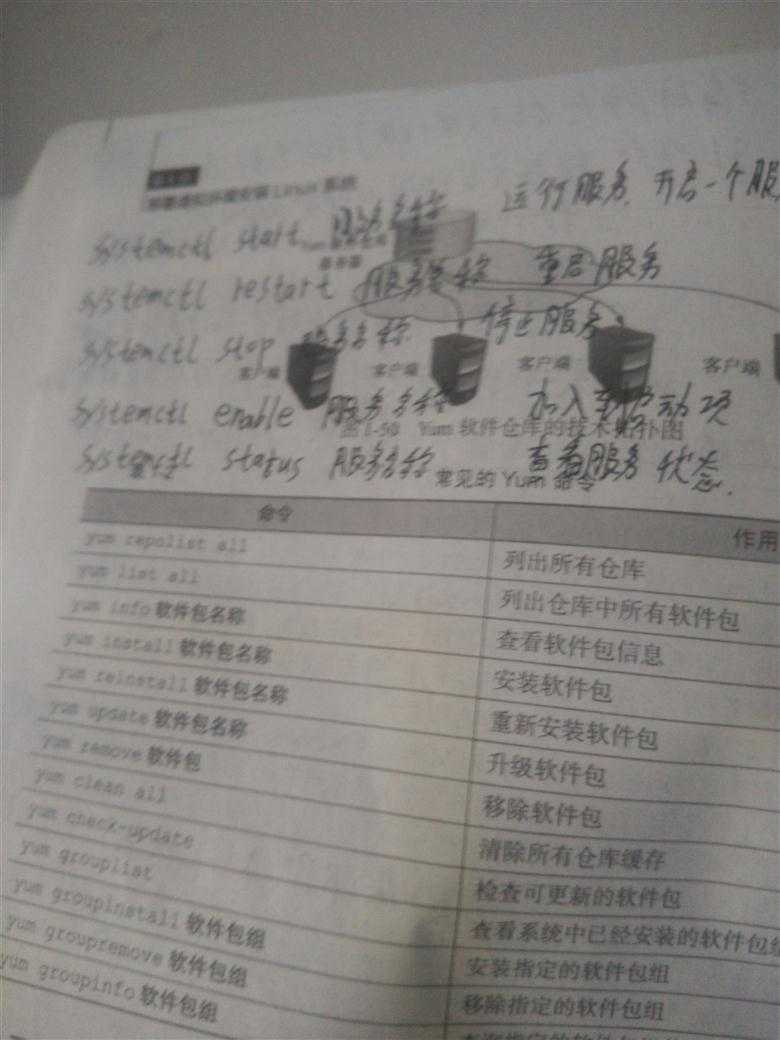 部署虚拟环境安装 Linux 系统
systemctl start 服务名称 运行服务. 开启一个服
服务器
systemctl restart 服务名称 重启服务
systemctl stop 服务名称. 停止服务
客户端 客户端 客户端 客户端
systemctl enable 服务名称 加入到启动项
图 1-50 Yum 软件仓库的技术拓扑图
systemctl status 服务名称 查看服务状态.
常见的 Yum 命令
命令 作用
yum repolist all 列出所有仓库
yum list all 列出仓库中所有软件包
yum info 软件包名称 查看软件包信息
yum install 软件包名称 安装软件包
yum reinstall 软件包名称 重新安装软件包
yum update 软件包名称 升级软件包
yum remove 软件包 移除软件包
yum clean all 清除所有仓库缓存
yum check-update 检查可更新的软件包
yum grouplist 查看系统中已经安装的软件包组
yum groupinstall 软件包组 安装指定的软件包组
yum groupremove 软件包组 移除指定的软件包组
yum groupinfo 软件包组